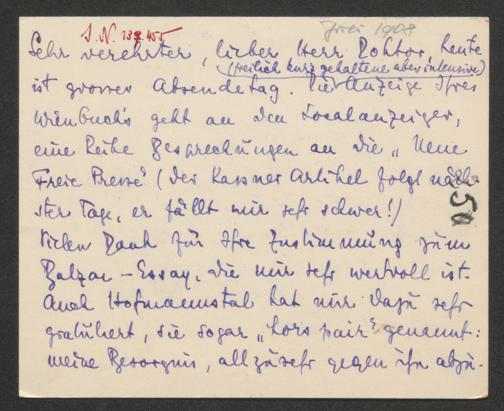 I. N. 139.455
Juni 1908
Sehr verehrter, lieber Herr Doktor, heute
(freilich kurz gehaltene aber intensive)
ist grosser Absendetag. Die Anzeige Ihres
Wienbuchs geht an den Localanzeiger,
eine Reihe Besprechungen an die „Neue
Freie Presse" (der Kassner Artikel folgt näch-
ster Tage, er fällt mir sehr schwer!)
Vielen Dank für Ihre Zustimmung zum
Balzac-Essay, die mir sehr wertvoll ist.
Auch Hofmannstal hat mir dazu sehr
gratuliert, sie sogar „hors pair" genannt:
meine Besorgnis, allzusehr gegen ihn abzu-
50